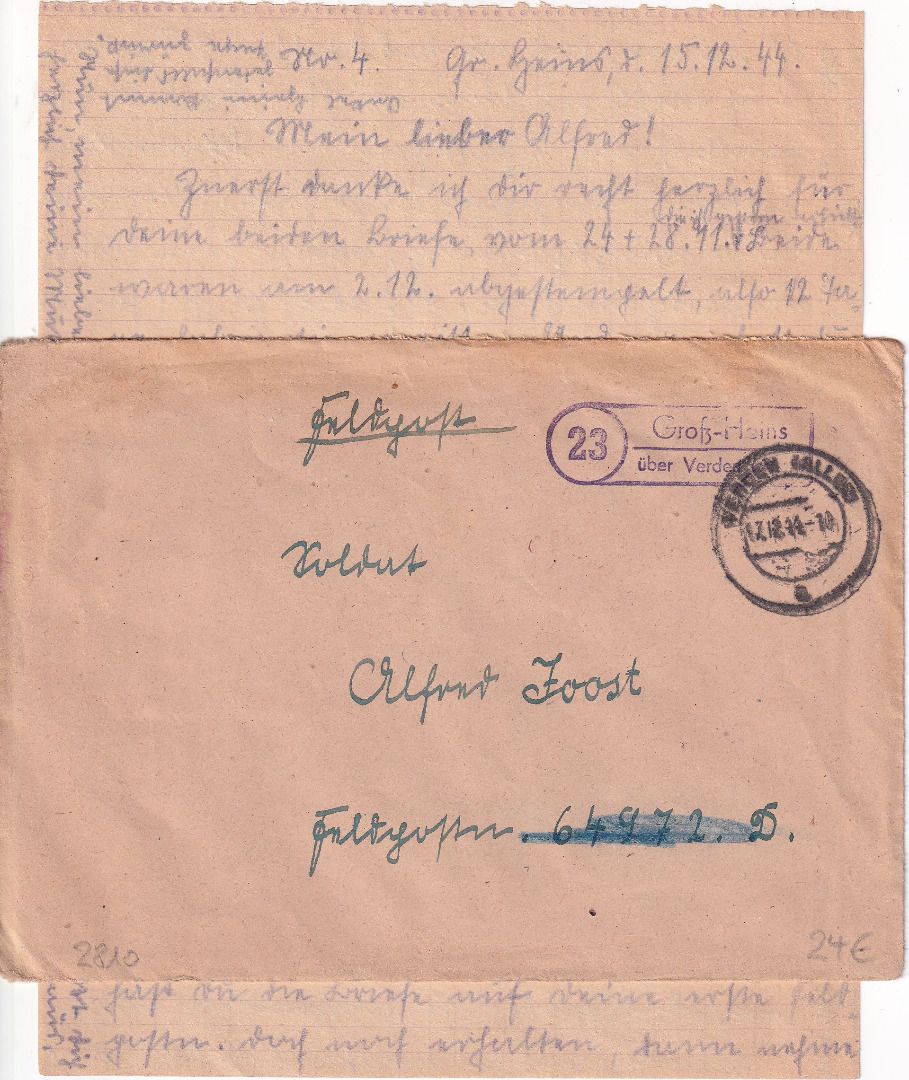 No. 4. Gr. Heins, d. 15.12.44.
Mein lieber Alfred!
Zuerst danke ich Dir recht herzlich für
die ich gestern erhielt.
deine beiden Briefe, vom 24 + 28.11. Beide
waren am 2.12. abgestempelt, also 12 Ta-
Feldpost
23
Groß-Heins
über Verden
VERDEN (ALLER)
17.12.44-10
a
Soldat
Alfred Joost
Feldpostn. 64972. D.
2810
24€
hast du die Briefe auf deine erste Feld
postn. doch noch erhalten, dann nehme